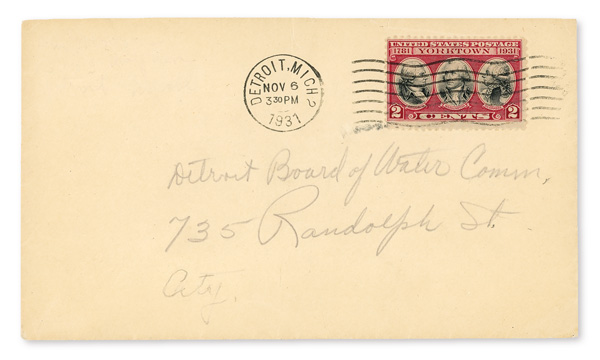 DETROIT, MICH 2
NOV 6
3 30 PM
1931
UNITED STATES POSTAGE
1781 YORKTOWN 1931
2 CENTS 2
Detroit Board of Water Comm,
735 Randolph St.
City.